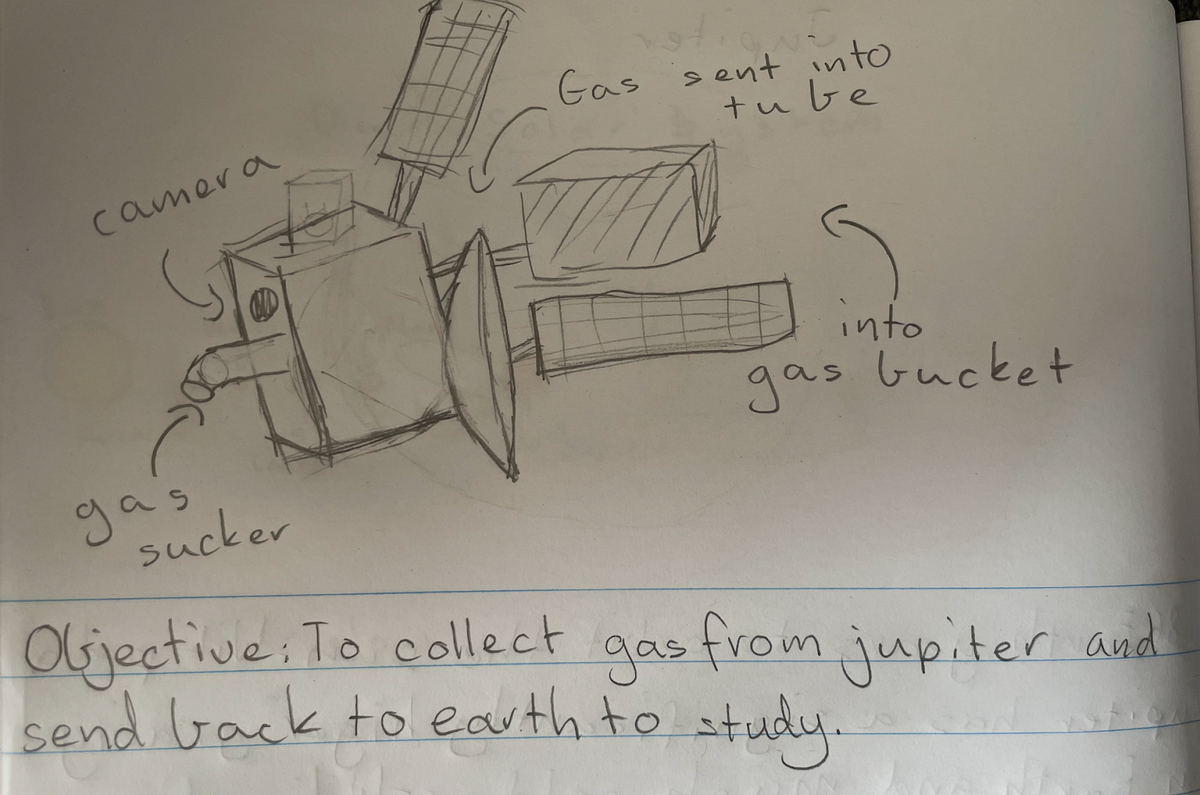 Gas sent into
tube
camera
into
gas bucket
gas
sucker
Objective: To collect gas from jupiter and
send back to earth to study.